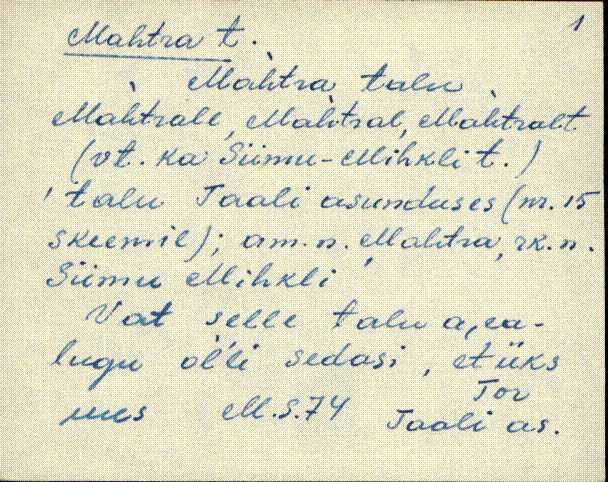 1
Mahtra t.
Màhtra talu
Màhtrale, Màhtral, Màhtralt
(vt. ka Siimu-Mihkli t.)
' talu Taali asunduses (nr. 15
skeemil); am.n. Mahtra, rk.n.
Siimu Mihkli '
Vat selle talu a,ea-
lugu òl'li sedasi, et üks
mees M.S.74 Tor
Taali as.